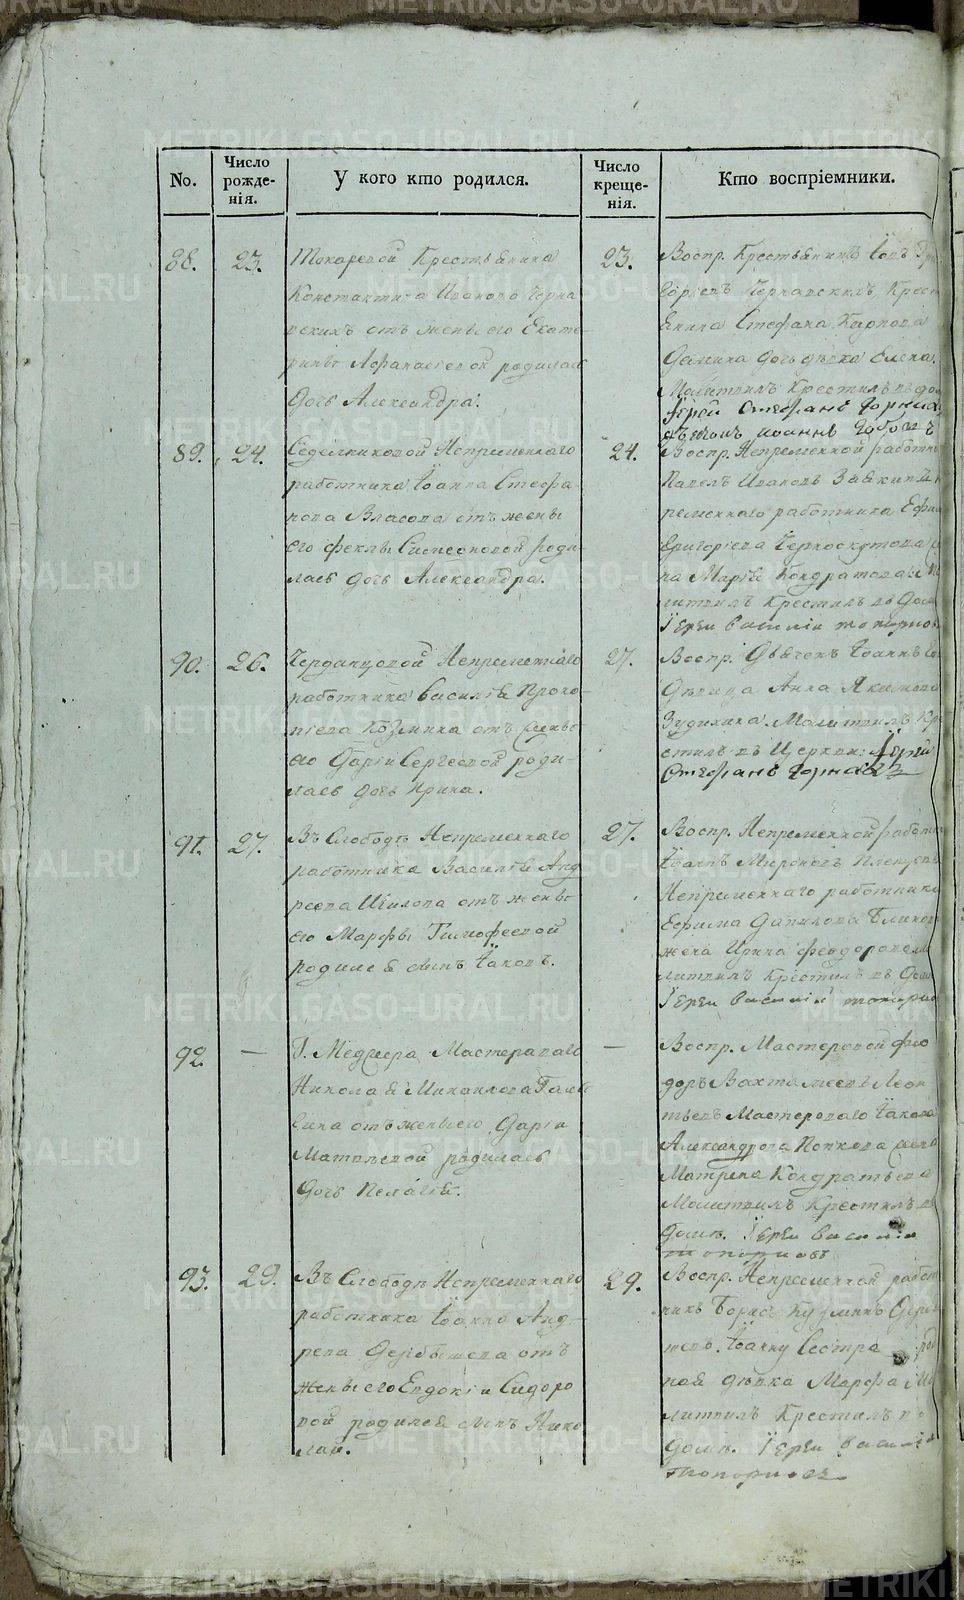 No.
Число
рожде-
нія.
У кого кто родился.
Число
креще-
нія.
Кто воспріемники.
88.
23.
Токаревой Крестьянина
Константина Иванова Черна
вскихъ отъ жены его Екате-
рины Афанасіевой родилась
дочь Александра.
23.
Воспр. Крестьянинъ
горіевъ Чернавскихъ, Крест
янина Стефана Карпова
дочь дѣвка Елена.
Молитвилъ Крестилъ въ дом
Іерей Стефанъ Горных
Іоаннъ
89.
24.
Седельниковой Непременнаго
работника Іоанна Стефа-
нова Власова отъ жены
его феклы Симеоновой роди-
лась дочь Александра.
24.
Воспр. Непременной работн
Павелъ Ивановъ
ременнаго работника Ефим
Григоріева Черноскутова
на Марія Кондратова
литвилъ Крестилъ въ Дом
Іерей Василій Топорков
90.
26.
Черданцовой Непременнаго
работника Василія Проко-
піева Козмина отъ жены
его Даріи Сергеевой роди-
лась дочь Ирина.
27.
Воспр. Дьячекъ Іоаннъ
Девица Анна Якимова
Зудихина. Молитвилъ Кр
стилъ въ Церкви: Іерей
Стефанъ Горныхъ
91.
27.
Въ Слободѣ Непременнаго
работника Василія Анд
реева Шилова отъ жены
его Марфы Тимофеевой
родился сынъ Іаковъ.
27.
Воспр. Непременной работн
Іоаннъ Мироновъ
Непременнаго работника
Ефима Данилова
жена Ирина Феодорова
литвилъ Крестилъ въ Дом
Іерей Василій
92.
—
Г. Медгера Мастероваго
Николая Михайлова
отъ жены его Дарьи
Матвѣевой родилась
Дочь Пелагія.
—
Воспр. Мастеровой фео
доръ Леон
тьевъ Мастероваго Іакова
Александрова Попкова жена
Матрена Кондратьева
Молитвилъ Крестилъ въ
Домѣ. Іерей Василій
93.
29.
Въ Слободѣ Непременнаго
работника Іоанна Анд-
реева отъ
жены его Евдокіи Сидоро
вой родился сынъ Нико
лай.
29.
Воспр. Непременной работ
никъ Борисъ Кузминъ
Іоанну Сестра род
ная дѣвка Марфа Мо
литвилъ Крестилъ въ
Домѣ. Іерей Василій
METRIKI.GASO-URAL.RU